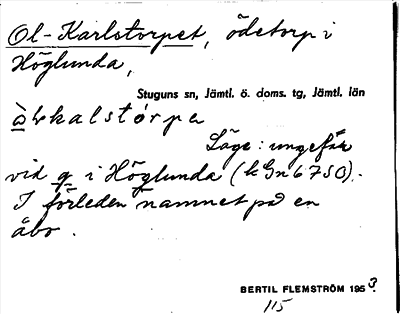 Ol-Karlstorpet, ödetorp i
Höglunda,
Stuguns sn, Jämtl. ö. doms. tg, Jämtl. län
Läge: ungefär
vid g i Höglunda (kGn6750).
I förleden namnet på en
åbo.
BERTIL FLEMSTRÖM 1953.
115